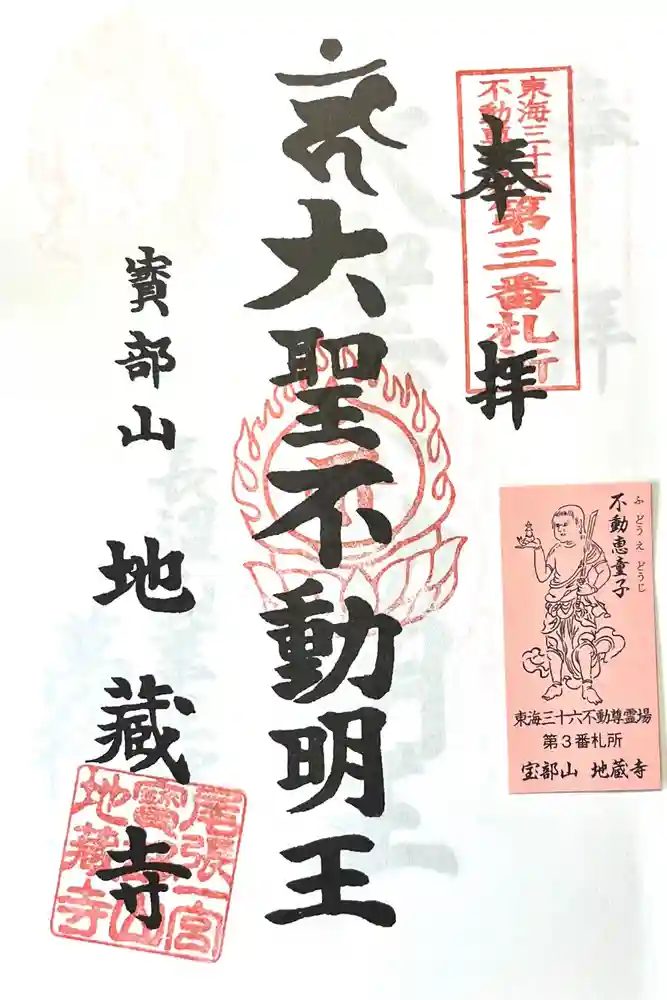 東海三十六
不動尊
第三番札所
奉拝
大聖不動明王
寳部山 地蔵寺
尾張一宮
寳部山
地蔵寺
不動恵童子
ふどうえどうじ
東海三十六不動尊霊場
第3番札所
宝部山 地蔵寺